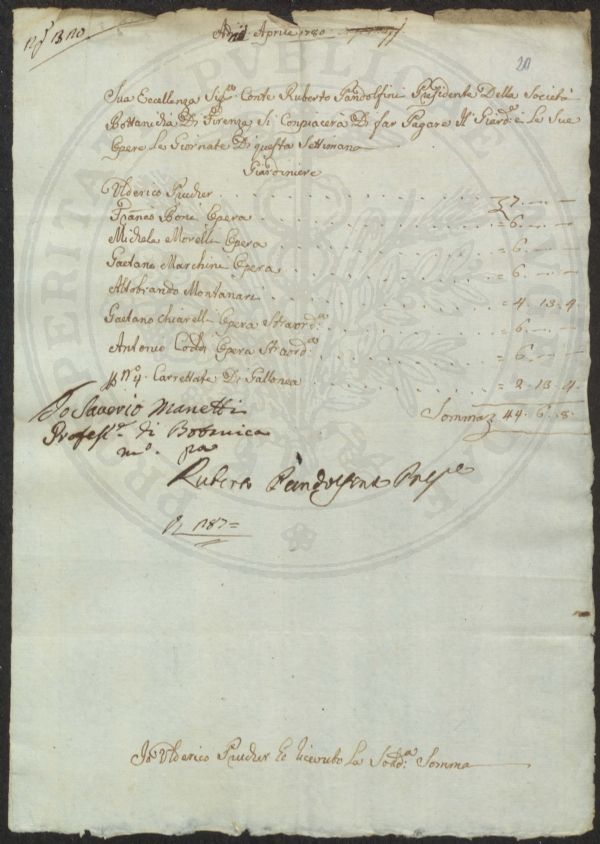 Adi Aprile 1780
20
Sua Eccellenza Sig.re Conte Ruberto Pandolfini Presidente Della Società
Bottanicha Di Firenze Si Conpiacerà Di far Pagare Il Giard.e e le Sue
Opere Le Giornate Di questa Settimana
Giardiniere
Ulderico Prucher 7
Franco Boni Opera = 6
Michele Morelli Opera = 6
Gaetano Marchini Opera = 6
Aldobrando Montanari = 4. 13. 4
Gaetano Chiarelli Opera Straord.a = 6
Antonio Opera Straord.a = 6
n.o 4 Carrettate Di Gallonea = 2. 13. 4
Somma 44. 6. 8
Io Saverio Manetti
Profess.e di Botanica
m.o pa
Ruberto Pandolfini Pres.e
Io Ulderico Prucher ho ricevuto La Sodd.a Somma
PROSPERITATI PUBLICAE AUGENDAE